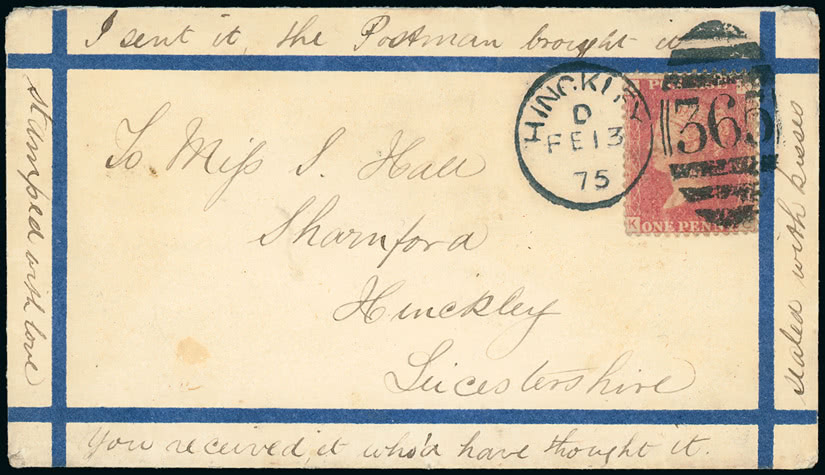 I sent it, the Postman brought it
stamped with love
sealed with kisses
HINCKLEY
D
FE 13
75
365
To Miss S. Hall
Sharnford
Hinckley
Leicestershire
K
ONE PENNY
You received it who'd have thought it.